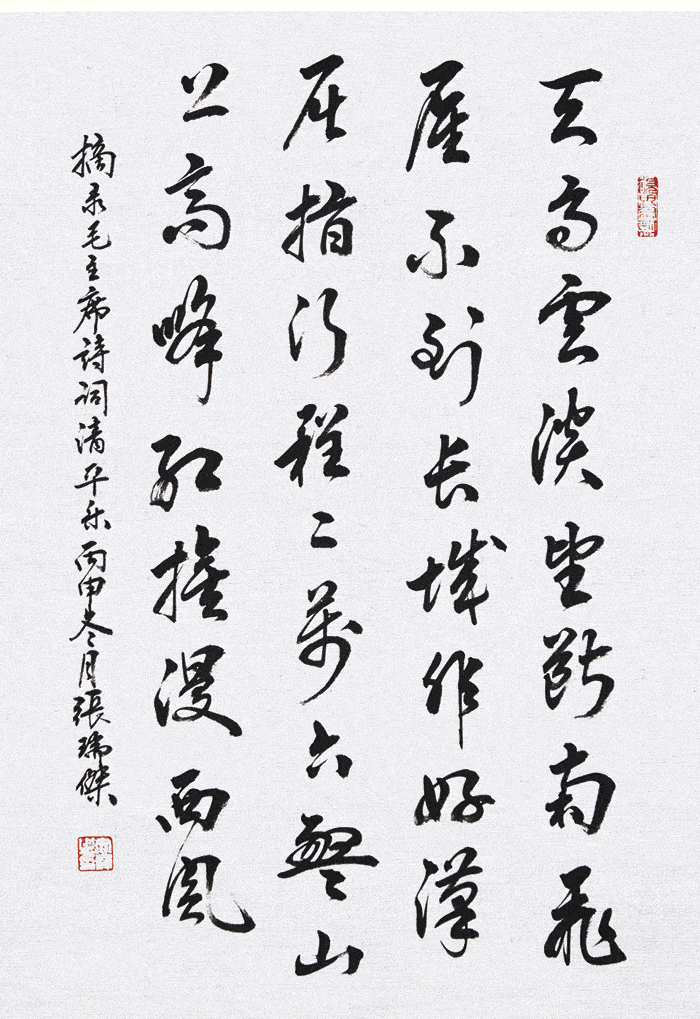 天高雲淡望斷南飛
雁不到长城作好漢
屈指行程二萬六盤山
上高峰紅旗漫西風
摘录毛主席詩詞清平乐丙申冬月張瑞傑